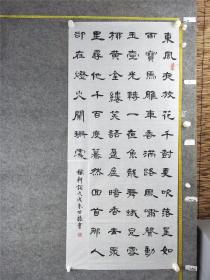 東風夜放花千樹更吹落星如
雨寶馬雕車香滿路鳳簫聲動
玉壺光轉一夜魚龍舞蛾兒雪
柳黃金縷笑語盈盈暗香去眾
里尋他千百度驀然回首那人
卻在燈火闌珊處
稼軒詞戊戌